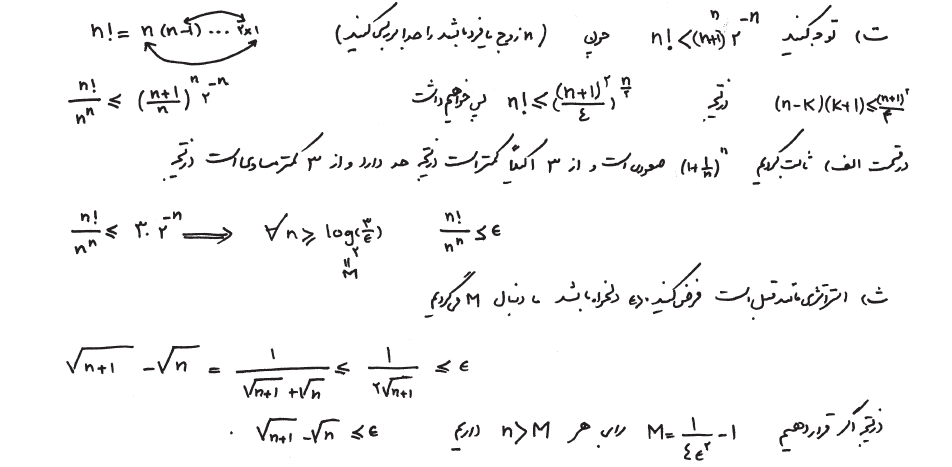 ت) توجه کنید n! < (n+1)^n 2^{-n} چون n! = n(n-1) ... 2×1 (n زوج یا فرد باشد را جدا بررسی کنید)
(n-k)(k+1) ≤ (n+1)^۲/۴ در نتیجه n! ≤ ((n+1)^۲/٤)^{n/۲} پس خواهیم داشت n!/n^n ≤ ((n+1)/n)^n ۲^{-n}
در قسمت الف) ثابت کردیم (1+1/n)^n صعودی است و از ۳ اکیداً کمتر است در نتیجه حد دارد و از ۳ کمتر مساوی است در نتیجه
n!/n^n ≤ ۳.۲^{-n} ⟹ ∀n ≥ log_۲(۳/ε) = M n!/n^n ≤ ε
ث) استراتژی مانند قبل است فرض کنید ε>۰ دلخواه باشد ما دنبال M می‌گردیم
√(n+1) - √n = 1/(√(n+1) + √n) ≤ 1/(۲√(n+1)) ≤ ε
در نتیجه اگر قرار دهیم M = 1/(٤ε^۲) - 1 برای هر n > M داریم √(n+1) - √n ≤ ε .